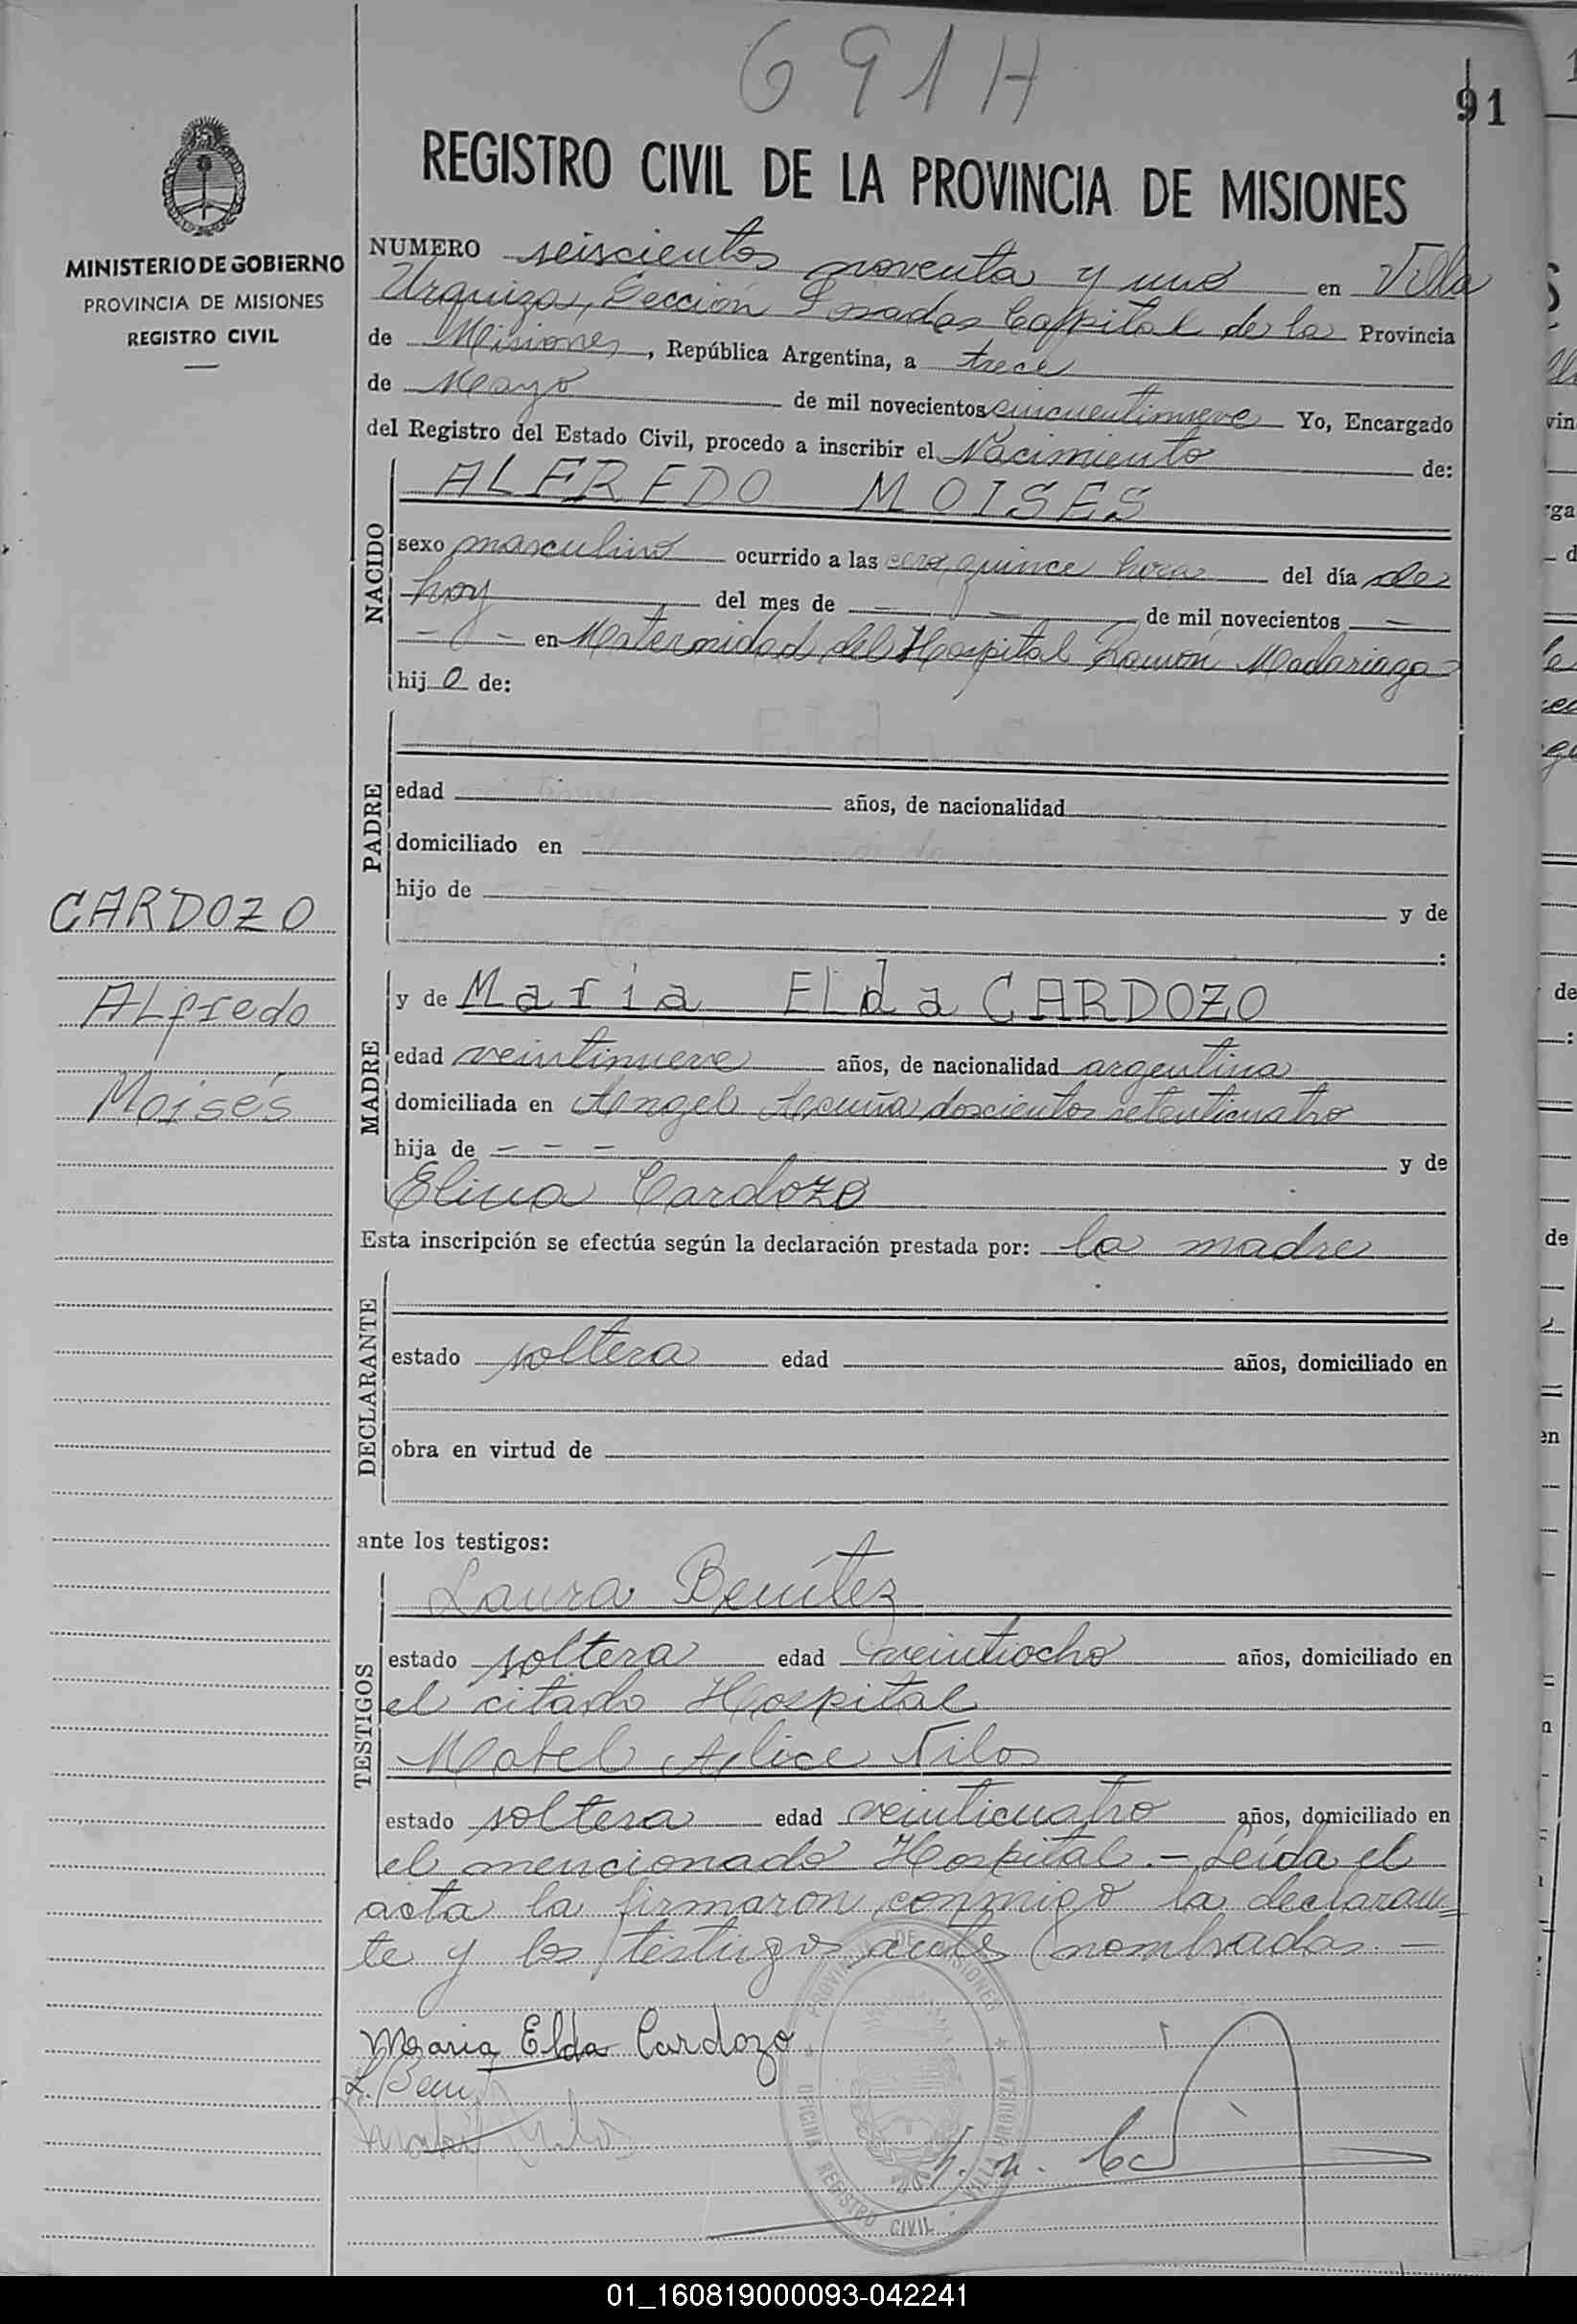 691 H
91
REGISTRO CIVIL DE LA PROVINCIA DE MISIONES
MINISTERIO DE GOBIERNO
PROVINCIA DE MISIONES
REGISTRO CIVIL
NUMERO seiscientos noventa y uno en Villa
Urquiza, Sección Posadas Cappital de la Provincia
de Misiones, República Argentina, a trece
de Mayo de mil novecientos cincuentinueve Yo, Encargado
del Registro del Estado Civil, procedo a inscribir el Nacimiento de:
NACIDO
ALFREDO MOISES
sexo masculino ocurrido a las cero quince hora del día de
hoy del mes de - - de mil novecientos -
- - en Maternidad del Hospital Ramón Madariaga
hijo de:
PADRE
edad años, de nacionalidad
domiciliado en
hijo de y de
:
CARDOZO
ALfredo
Moisés
MADRE
y de Maria ELda CARDOZO
edad veintinueve años, de nacionalidad argentina
domiciliada en Angel Acuña doscientos setenticuatro
hija de - - - y de
Elina Cardozo
Esta inscripción se efectúa según la declaración prestada por: la madre
DECLARANTE
estado soltera edad años, domiciliado en
obra en virtud de
ante los testigos:
TESTIGOS
Laura Benítez
estado soltera edad veintiocho años, domiciliado en
el citado Hospital
Mabel Alice Nilos
estado soltera edad veinticuatro años, domiciliado en
el mencionado Hospital.- Leída el
acta la firmaron conmigo la declaran=
te y los testigos antes nombrados.-
Maria Elda Cardozo
L. Benit
PROVINCIA DE MISIONES
OFICINA REGISTRO CIVIL - VILLA URQUIZA
01_160819000093-042241